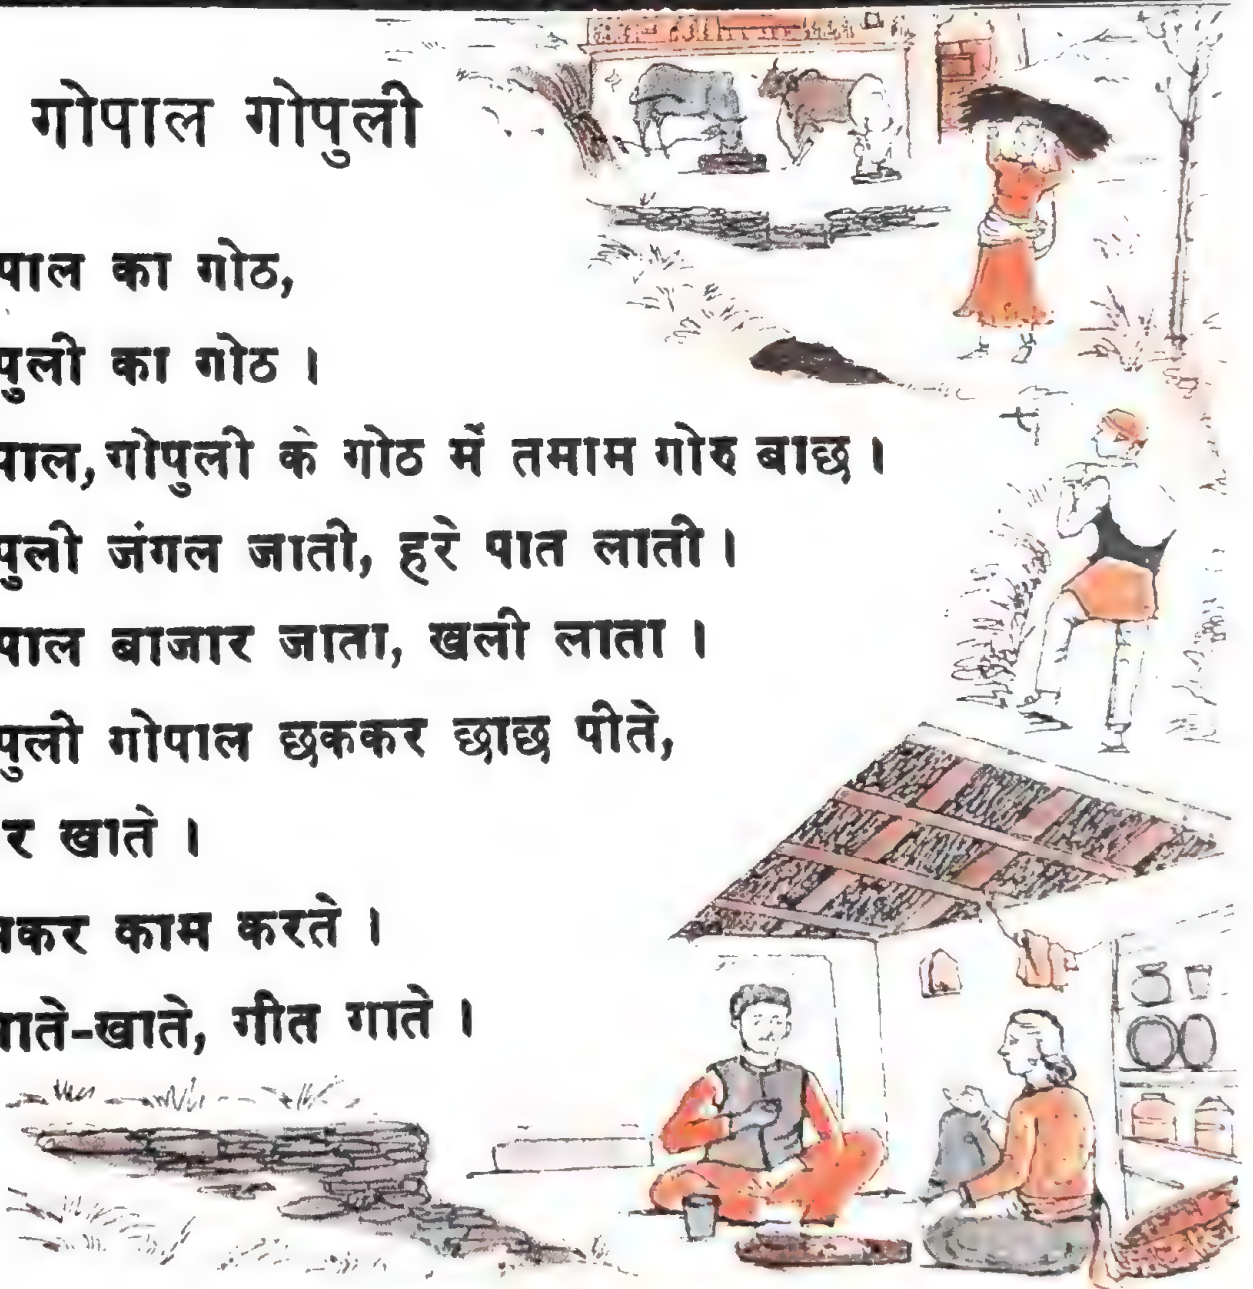 गोपाल गोपुली
पाल का गोठ,
पुली का गोठ ।
पाल, गोपुली के गोठ में तमाम गोरु बाछ ।
पुली जंगल जाती, हरे पात लाती ।
पाल बाजार जाता, खली लाता ।
पुली गोपाल छककर छाछ पीते,
र खाते ।
कर काम करते ।
ाते-खाते, गीत गाते ।